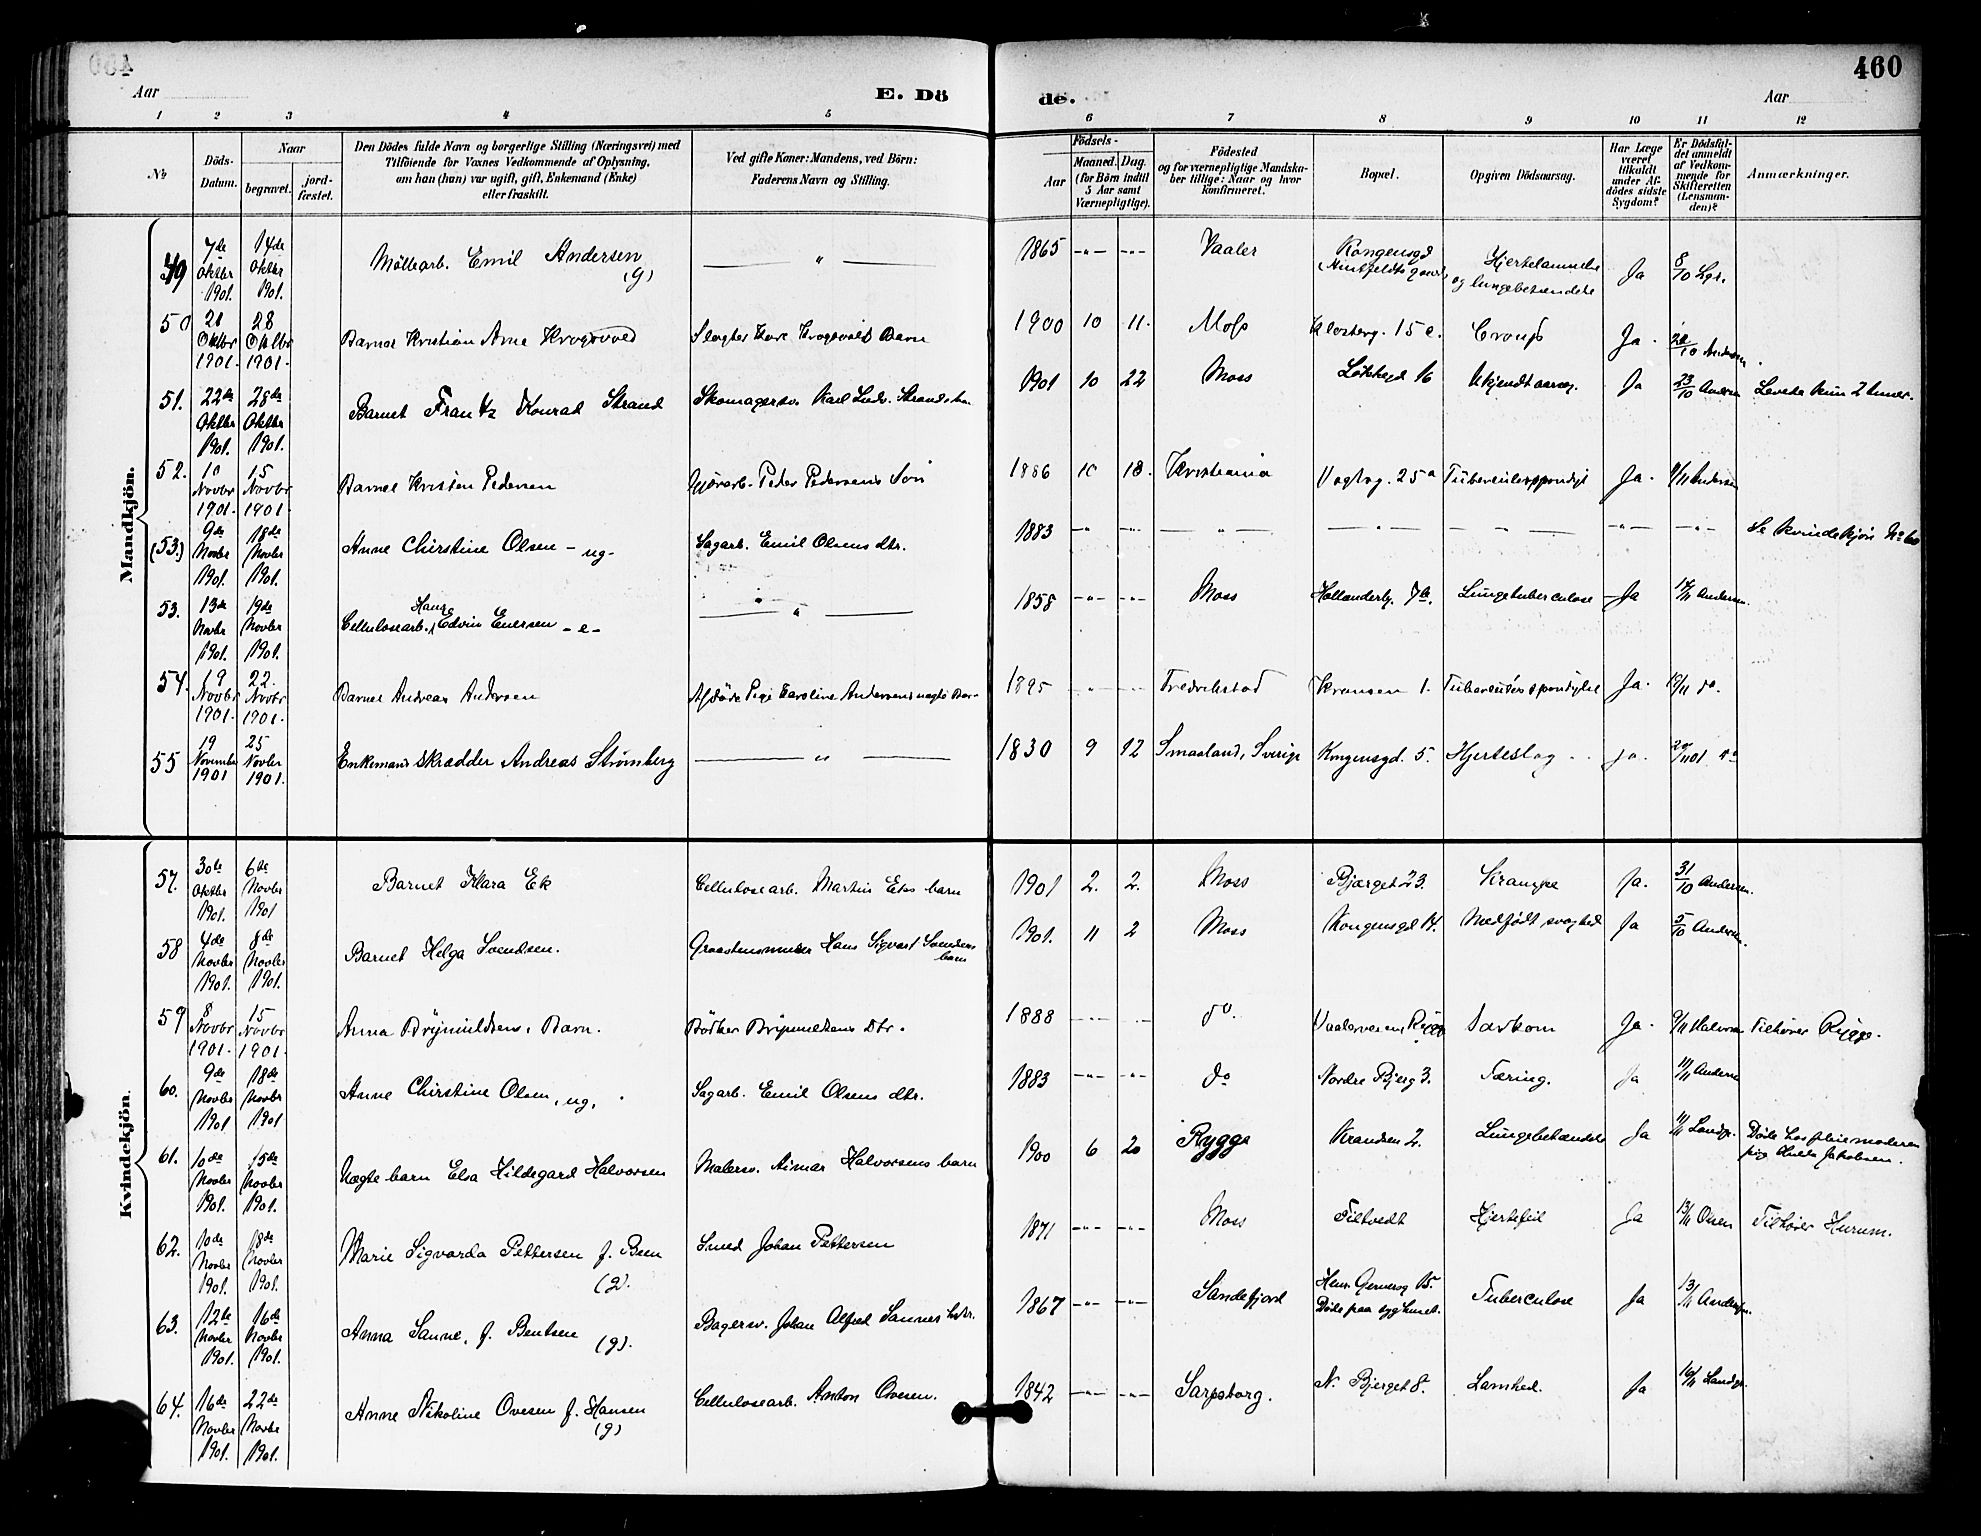 460
Aar
E. Dö
de.
Aar
1 2 3 4 5 6 7 8 9 10 11 12
No
Döds-Datum.
Naar
begravet.
jord-fæstet.
Den Dödes fulde Navn og borgerlige Stilling (Næringsvei) med
Tilföiende for Voxnes Vedkommende af Oplysning,
om han (hun) var ugift, gift, Enkemand (Enke)
eller fraskilt.
Ved gifte Koner: Mandens, ved Börn:
Faderens Navn og Stilling.
Födsels-
Aar
Maaned. Dag.
(for Börn indtil
5 Aar samt
Værnepligtige).
Födested
og for værnepligtige Mandska-
ber tillige: Naar og hvor
konfirmeret.
Bopæl.
Opgiven Dödsaarsag.
Har Læge
været
tilkaldt
under Af-
dödes sidste
Sygdom?
Er Dödsfal-
det anmeldt
af Vedkom-
mende for
Skifteretten
(Lensman-
den)?
Anmærkninger.
Mandkjön.
49 7de Oktbr 1901. 14de Oktbr 1901. Möllearb. Emil Andersen (g) — " — 1865 -"- -"- Vaaler Kongensgd Hjertelammelse og lungebetændelse Ja 8/10 Lgr.
50 21 Oktbr 1901. 28 Oktbr 1901. Barnet Kristian Arne Krogsvold Slagter Krogsvolds Barn 1900 10 11. Moss Klosterg. 15 c. Croup Ja. 22/10 Andersen.
51. 22de Oktbr 1901. 28de Oktbr 1901. Barnet Frantz Konrad Strand Skomagersv. Karl Ludv. Strands bn 1901 10 22 Moss Løkkegd 16 Ukjendt aarsag. Ja 23/10 Andersen Levede kun 2 timer.
52. 10 Novbr 1901. 15 Novbr 1901. Barnet Kristen Pedersen Peder Pedersens Søn 1886 10 18. Kristiania Vogtsg. 25a Tuberculøs spondylit Ja. 9/11 Andersen
(53.) 9de Novbr 1901. 18de Novbr 1901. Anne Christine Olsen – ug- Sagarb. Emil Olsens dtr. 1883 -"- -"- — " — — " — — " — -"- -"- Se kvindekjön No 60
53. 13de Novbr 1901. 19de Novbr 1901. Cellulosearb. Hans Edvin Enersen – e – — " — 1858 -"- -"- Moss Hollenderg. 7b. Lungetuberculose Ja 14/11 Andersen.
54. 19 Novbr 1901. 22. Novbr 1901. Barnet Andreas Andersen Afdöde Pige Caroline Andersens uægte Barn 1895 Fredrikstad Kransen 1. Tuberculøs spondylit Ja. 19/11 do.
55 19 November 1901 25 Novbr 1901. Enkemand Skrædder Andreas Strømberg — " — 1830 9 12 Smaaland, Sverige Kongensgd. 5. Hjerteslag Ja. 20/11 01 do
Kvindekjön.
57. 30te Oktbr 1901. 6te Novbr 1901 Barnet Klara Ek Cellulosearb. Martin Eks barn 1901 2. 2. Moss Bjærget 23. Krampe Ja. 31/10 Andersen.
58 4de Novbr 1901. 8de Novbr 1901. Barnet Helga Svendsen. Graastensmurer Hans Sigvart Svendsens barn 1901. 11 2 Moss Kongensgd 14. Medfödt svaghed Ja 5/10 Andersen.
59 8 Novbr 1901. 15 Novbr 1901. Anna Brynildsen, Barn. Bödker Brynildsens Dtr. 1888 do. Vaalerveien Rygge Sarkom Ja. 9/11 Halvorsen Tilhører Rygge.
60. 9de Novbr 1901 18de Novbr 1901 Anne Christine Olsen, ug, Sagarb. Emil Olsens dtr. 1883 -"- -"- do Nordre Bjerg 3. Tæring. Ja 11/11 Andersen
61. 10de Novbr 1901. 15de Novbr 1901. Uægte barn Elsa Hildegard Halvorsen Malersv. Aimar Halvorsens barn 1900 6 20 Rygge Krandsen 2. Lungebetændelse Ja 11/11 Landgr. Døde hos pleiemoderen pige Hulda Jakobsen.
62. 10de Novbr 1901. 18de Novbr 1901. Marie Sigvarda Pettersen f. Been (g). Smed Johan Pettersen 1871 -"- -"- Moss Tiltvedt Hjertefeil Ja 13/11 Olsen Tilhører Hurum.
63. 12te Novbr 1901. 16de Novbr 1901. Anna Sanne, f. Bentsen (g). Bagersv. Johan Alfred Sannes hstr. 1867 -"- -"- Sandefjord Henr. Gernersg 15. Døde paa sygehuset. Tuberculose Ja 13/11 Andersen.
64. 16de Novbr 1901. 22de Novbr 1901. Anne Nikoline Ovesen f. Hansen (g) Cellulosearb. Anton Ovesen. 1842 -"- -"- Sarpsborg. N. Bjerget 8. Lamhed. Ja 16/11 Landgr.